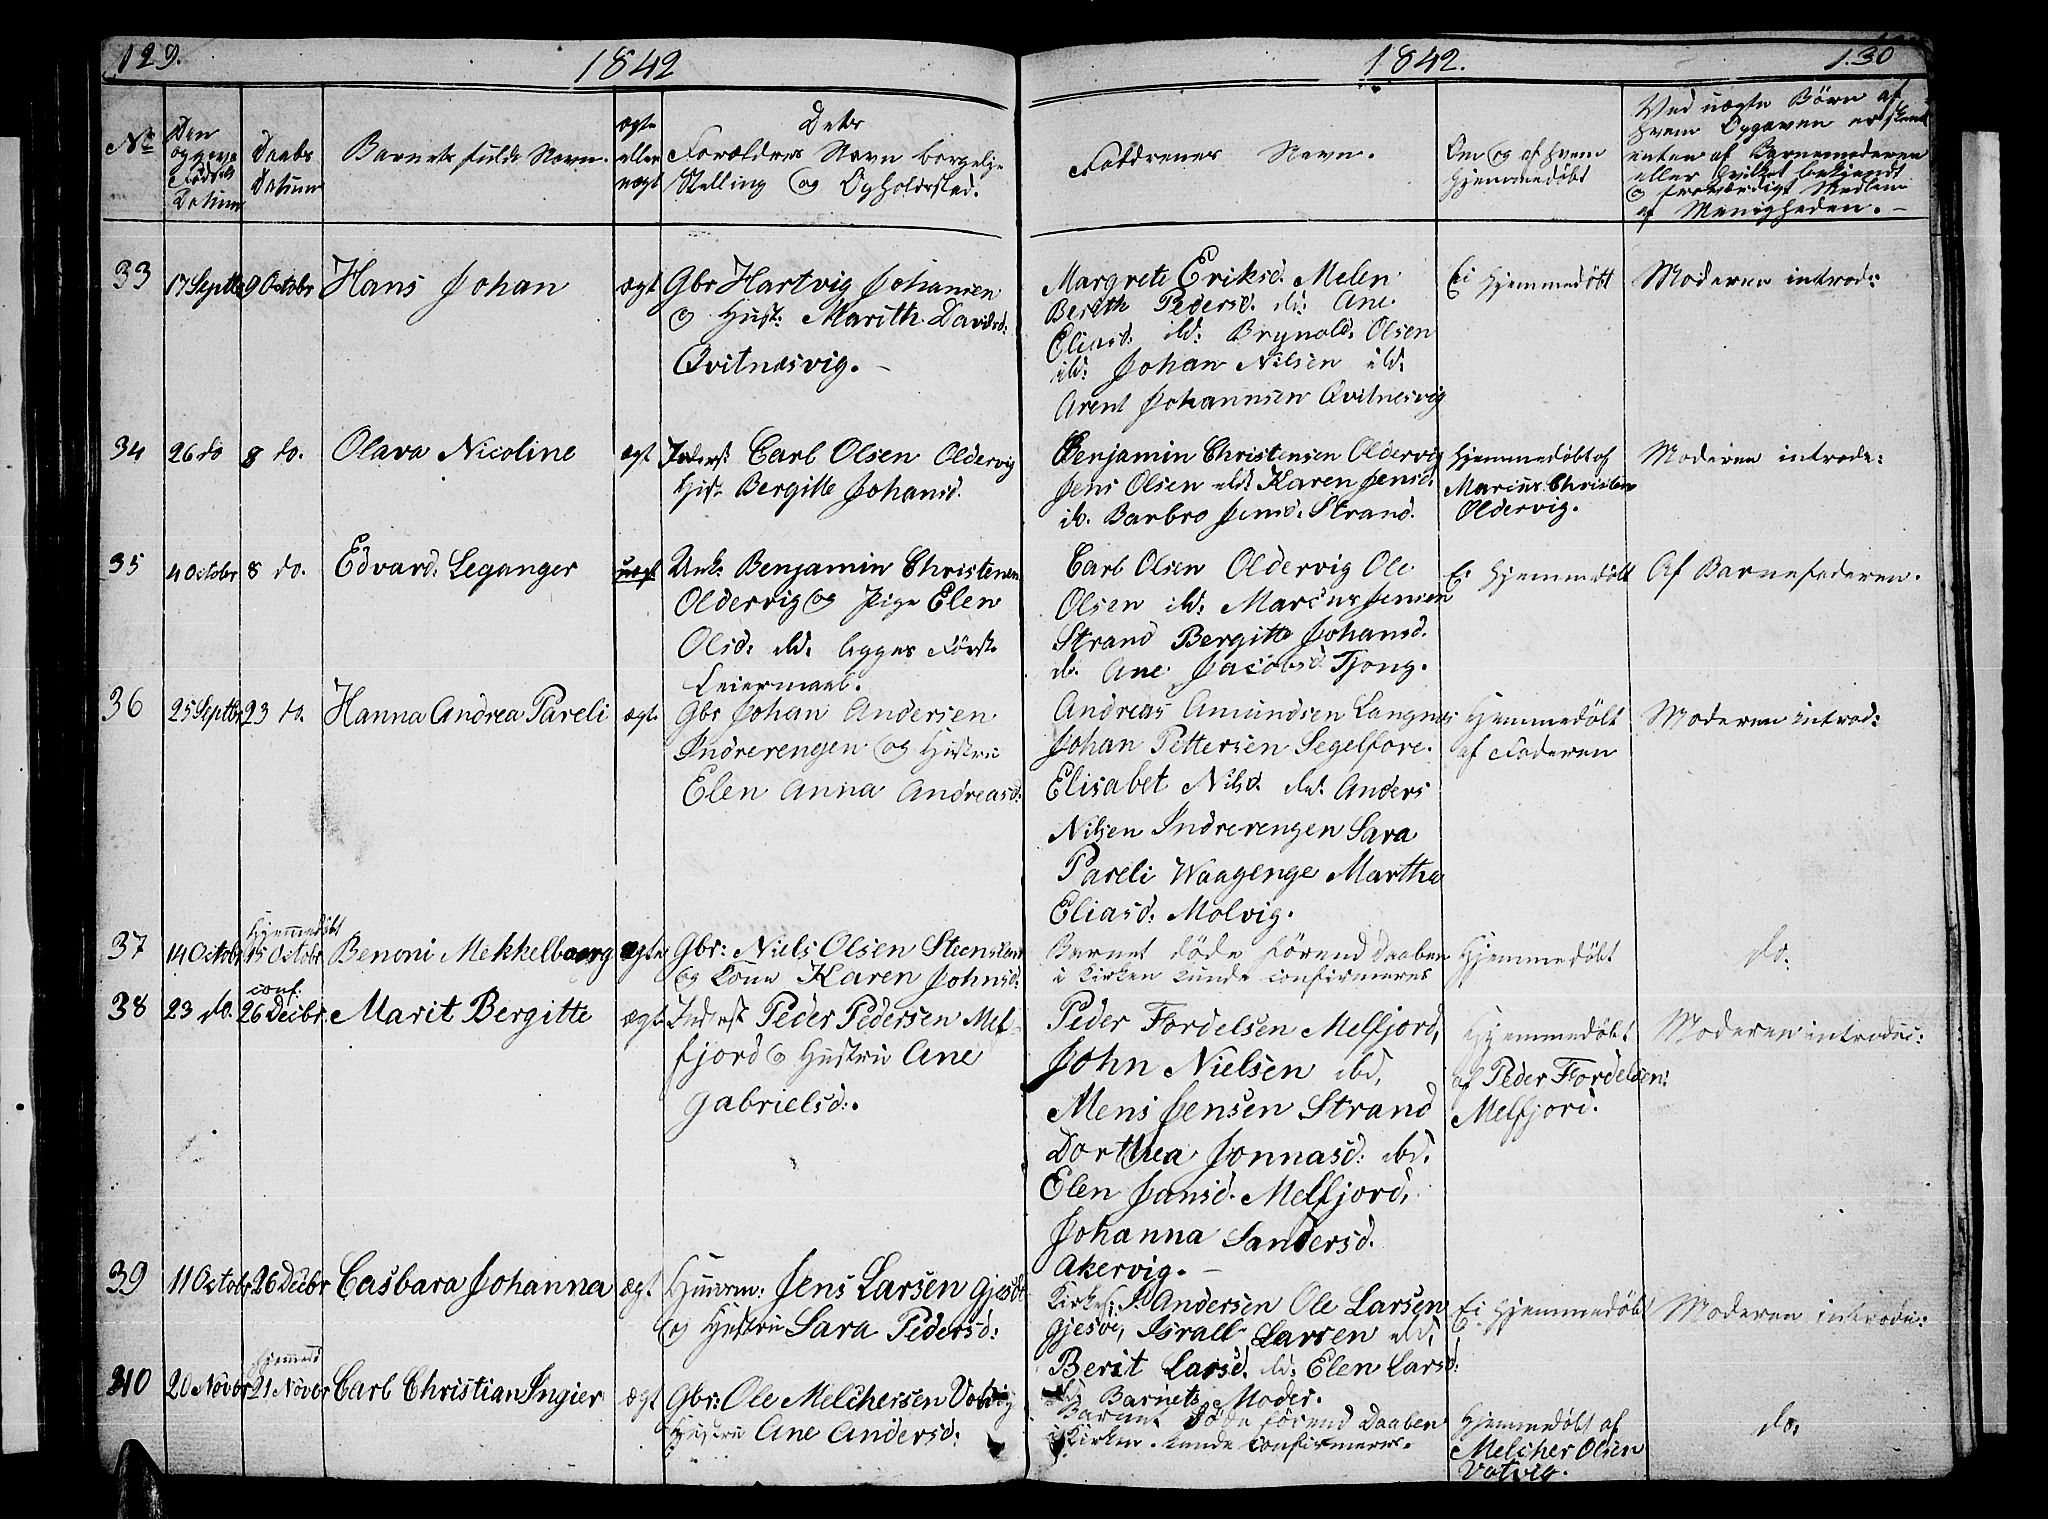 129.
1842
No
Den opgivne Fødsels Datum
Daabs Datum
Barnets fulde Navn.
ægte eller uægt
Dets Forældres Navn borgelige Stilling og Opholdsted.
33
17 Septbr
9 Octobr
Hans Johan
ægt
Gbr Hartvig Johansen
og Hust: Marith Davidsd:
Qvitnæsvig. —
34
26 do
8 do.
Olava Nicoline
ægt
Inderst Carl Olsen Oldervig
Hust. Bergitte Johansd.
35
4 Octobr
8 do.
Edvard. Leganger
uægt
Unk: Benjamin Christensen
Oldervig og Pige Elen
Olsd: ibd. begges Første
Leiermaal.
36
25 Septbr
23 do.
Hanna Andrea Pareli
ægt.
Gbr Johan Andersen
Indrerengen og Hustru
Elen Anna Andreasd:
37
14 Octobr
Hjemmedøbt
15 Octobr
Benoni Mekkelborg
ægte
Gbr: Niels Olsen Steensland
og Kone Karen Johnsd:
38
23 do.
conf.
26 Decbr.
Marit Bergitte
ægt.
Inderst Peder Pedersen Mel-
fjord og Hustru Ane
Gabrielsd:.
39
11 Octobr
26 Decbr
Casbara Johanna
ægt
Huusm: Jens Larsen Gjesø
og Hustru Sara Pedersd:
40
20 Novbr
Hjemmed
21 Novbr
Carl Christian Ingier
ægt
Gbr: Ole Melchersen Vatvig
Hustru Ane Andersd:
1842.
130
Faddrenes Navn.
Om og af hvem hjemmedøbt
Ved uægte Børn af
hvem Opgaven er skeet
enten af Barnemoderen
eller hvilket bekjendt
og troværdigt Medlem
af Menigheden. —
Margrete Eriksd. Melen
Berith Pedersd. ibd: Ane
Eliasd: ibd: Brynild. Olsen
ibd: Johan Nilsen ibd.
Arent Johannsen Qvitnesvig
Ei Hjemmedøbt
Moderen introd:
Benjamin Christensen Oldervig
Jens Olsen ibd: Karen Jensd.
ib. Barbro Jensd. Strand.
Hjemmedøbt af
Marcus Christens
Oldervig.
Moderen introdu:
Carl Olsen Oldervig Ole
Olsen ibd: Marcus Jensen
Strand Bergitte Johansd.
ib. Ane Jacobsd Tjong.
Ei Hjemmedøbt
Af Barnefaderen.
Andreas Amundsen Langnes
Johan Pettersen Segelfore.
Elisabet Nilsd. ibd. Anders
Nilsen Indrerengen Sara
Pareli Waagenge Martha
Eliasd: Molvig.
Hjemmedøbt
af Faderen
Moderen introd:
Barnet døde førend Daaben
i Kirken kunde confirmeres
Hjemmedøbt
do:
Peder Fordelsen Melfjord,
John Nielsen ibd,
Mens Jensen Strand
Dorthea Jonnasd: ibd.
Elen Jansd. Melfjord,
Johanna Sandersd.
Akervig. —
Hjemmedøbt
af Peder Fordelsen:
Melfjord.
Moderen introduc:
Kirkes: J. Andersen Ole Larsen
Gjesøe, Israel Larsen ibd,
Berit Larsd. ibd: Elen Larsd:
Barnets Moder.
Ei Hjemmedøbt
Moderen introdu:
Barnet døde førend Daaben
i Kirken kunde confirmeres.
Hjemmedøbt af
Melcher Olsen
Vatvig.
do.